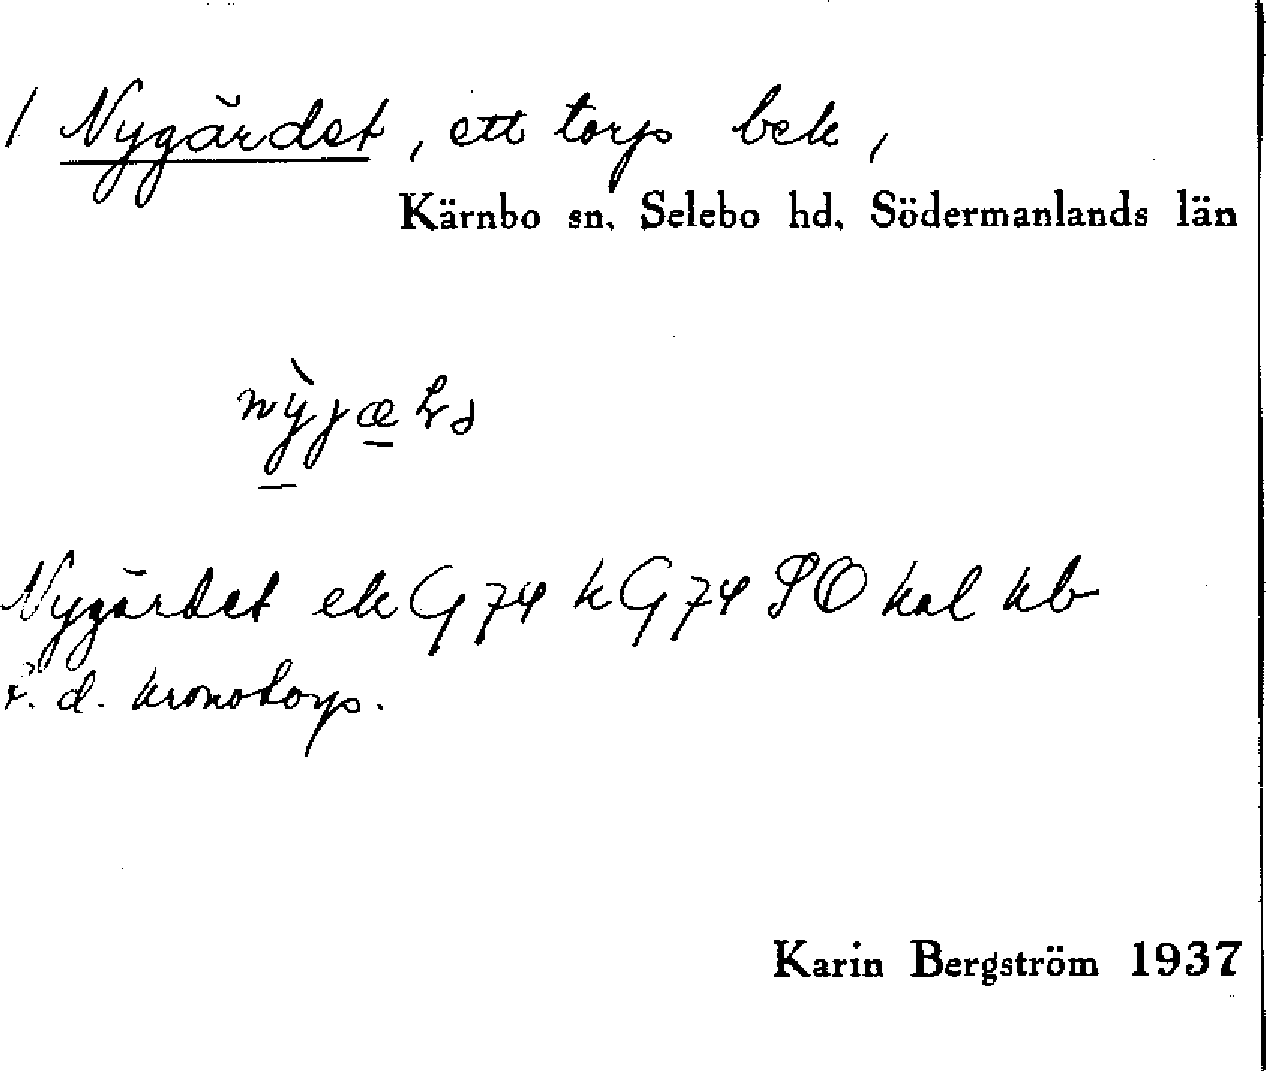 1 Nygärdet, ett torp bek,
Kärnbo sn. Selebo hd. Södermanlands län
Nygärdet ek G 74 k G 74 PO kal kb
f. d. kronotorp.
Karin Bergström 1937